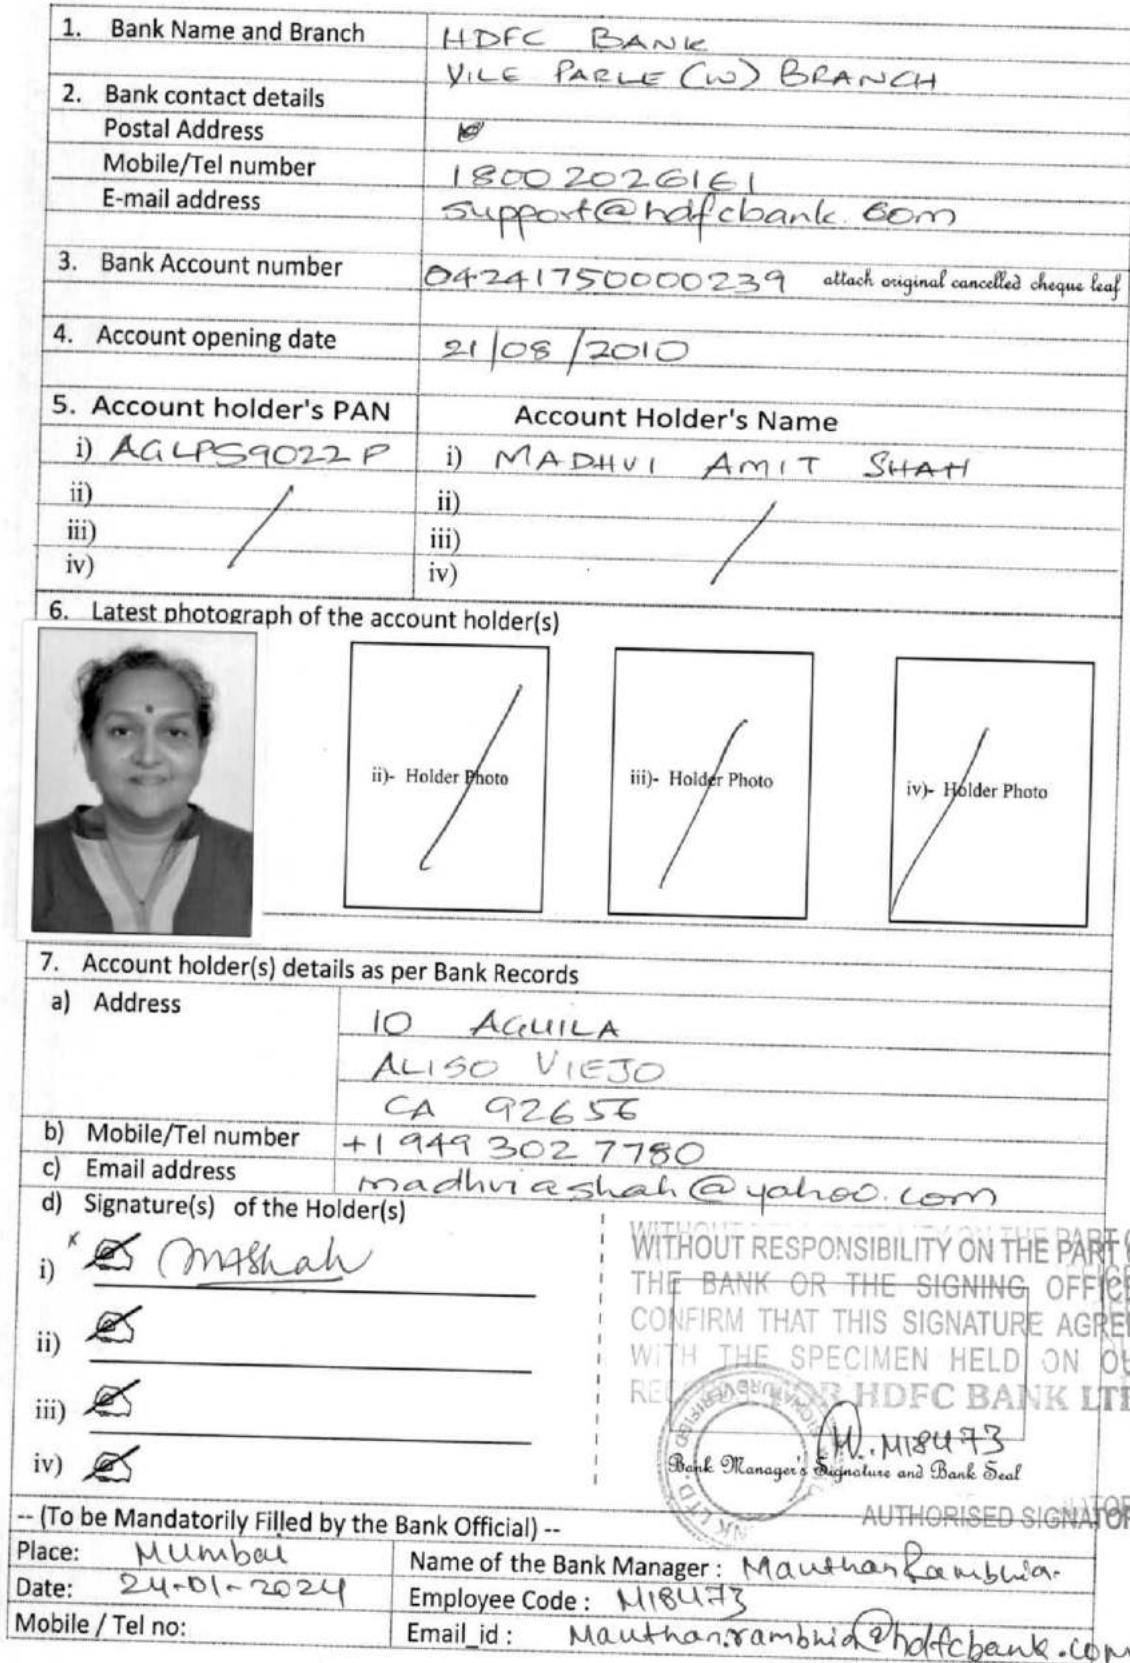 1. Bank Name and Branch HDFC BANK
VILE PARLE (W) BRANCH
2. Bank contact details
Postal Address
Mobile/Tel number 18002026161
E-mail address support@hdfcbank.com
3. Bank Account number 04241750000239 attach original cancelled cheque leaf
4. Account opening date 21/08/2010
5. Account holder's PAN Account Holder's Name
i) AGLPS9022P i) MADHVI AMIT SHAH
ii) ii)
iii) iii)
iv) iv)
6. Latest photograph of the account holder(s)
ii)- Holder Photo iii)- Holder Photo iv)- Holder Photo
7. Account holder(s) details as per Bank Records
a) Address 10 AGUILA
ALISO VIEJO
CA 92656
b) Mobile/Tel number +1 949 302 7780
c) Email address madhviashah@yahoo.com
d) Signature(s) of the Holder(s)
i) MAShah
ii)
iii)
iv)
WITHOUT RESPONSIBILITY ON THE PART
THE BANK OR THE SIGNING OFFICE
CONFIRM THAT THIS SIGNATURE AGREE
WITH THE SPECIMEN HELD ON
HDFC BANK LTD
M18473
Bank Manager's Signature and Bank Seal
AUTHORISED SIGNATOR
-- (To be Mandatorily Filled by the Bank Official) --
Place: Mumbai Name of the Bank Manager : Manthan Rambhia
Date: 24-01-2024 Employee Code : M18473
Mobile / Tel no: Email_id : Manthan.rambhia@hdfcbank.com